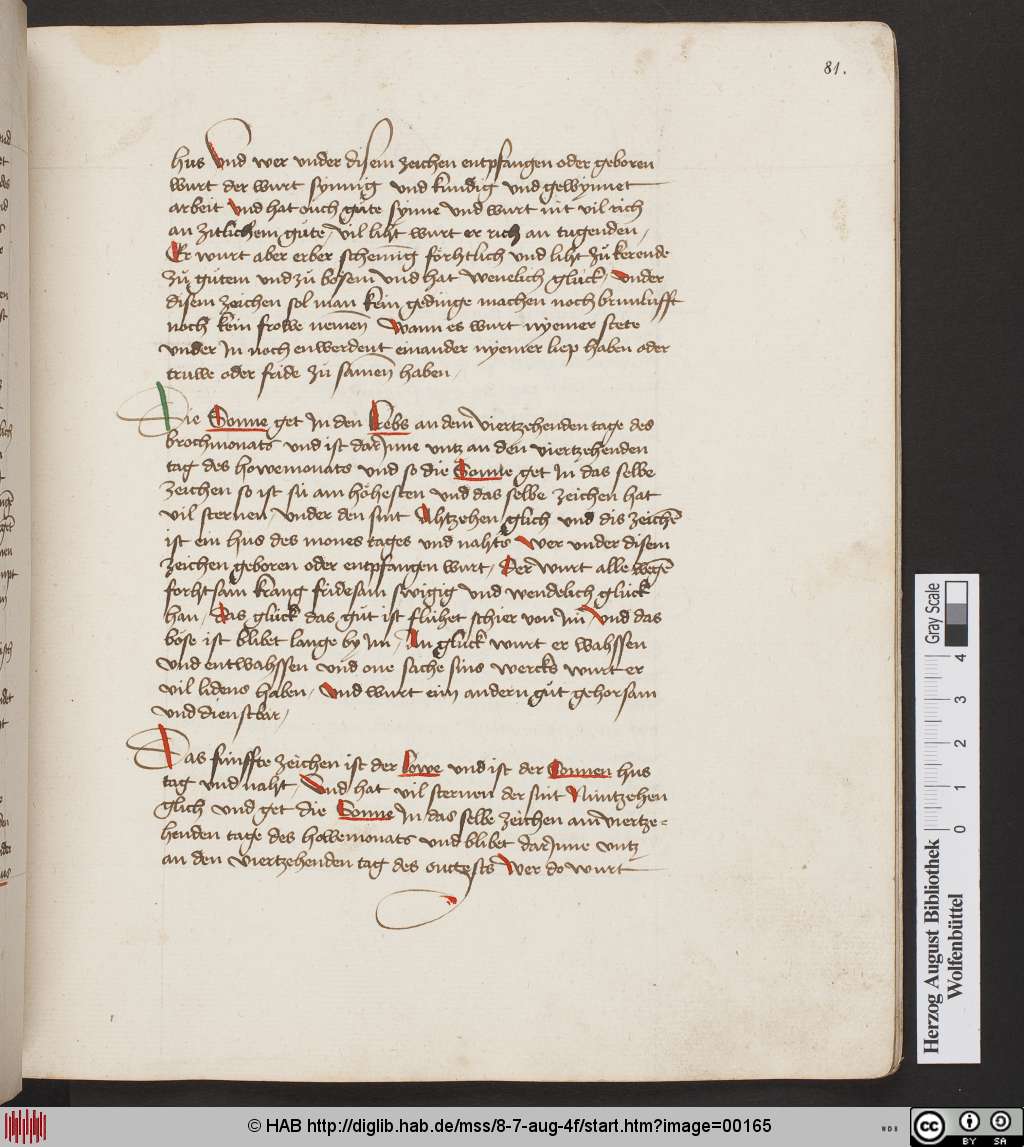 81.
hus Vnd wer vnder disem zeichen entpfangen oder geboren
wurt der wurt synnig vnd kundig vnd gewynnet
arbeit vnd hat ouch gůte synne vnd wurt nit vil rich
an zitlichem gůte, vil liht wurt er rich an tugenden,
Er wurt aber erber scheinig forhtlich vnd liht zů kerende
zů gůtem vnd zů bosem vnd hat wenelich glück, vnder
disem zeichen sol man kein gedinge machen noch brunlufft
noch kein frowe nemen Wann es wurt nyemer stete
vnder Jn noch enwerdent einander nyemer liep haben oder
truwe oder fride zů samen haben,
Die Sonne get Jn den Krebs an dem viertzehenden tage des
brochmonats vnd ist darJnne vntz an den viertzehenden
tag des howemonats vnd so die Sonne get Jn das selbe
zeichen so ist sü am höhesten vnd das selbe zeichen hat
vil sternen, vnder den sint Ahtzehen glich vnd dis zeichē
ist ein hus des mones tages vnd nahts Wer vnder disem
zeichen geboren oder entpfangen wurt, Der wurt alle wegē
forhtsam krang fridesam swigig vnd wendelich glück
han, Das glück das gůt ist flühet schier von Jm, vnd das
böse ist blibet lange by Jm, An glück wurt er wahssen
vnd entwahssen vnd one sache sins wercks wurt er
vil lidens haben, vnd wurt eim andern gůt gehorsam
vnd dienstbar,
Das fünffte zeichen ist der lowe vnd ist der Sonnen hus
tag vnd naht, Vnd hat vil sternen der sint Nüntzehen
glich vnd get die Sonne Jn das selbe zeichen am viertze=
henden tage des howemonats vnd blibet darJnne vntz
an den viertzehenden tag des ougests Wer do wurt
Gray Scale
0 1 2 3 4
Herzog August Bibliothek
Wolfenbüttel
© HAB http://diglib.hab.de/mss/8-7-aug-4f/start.htm?image=00165
WDB
cc BY SA